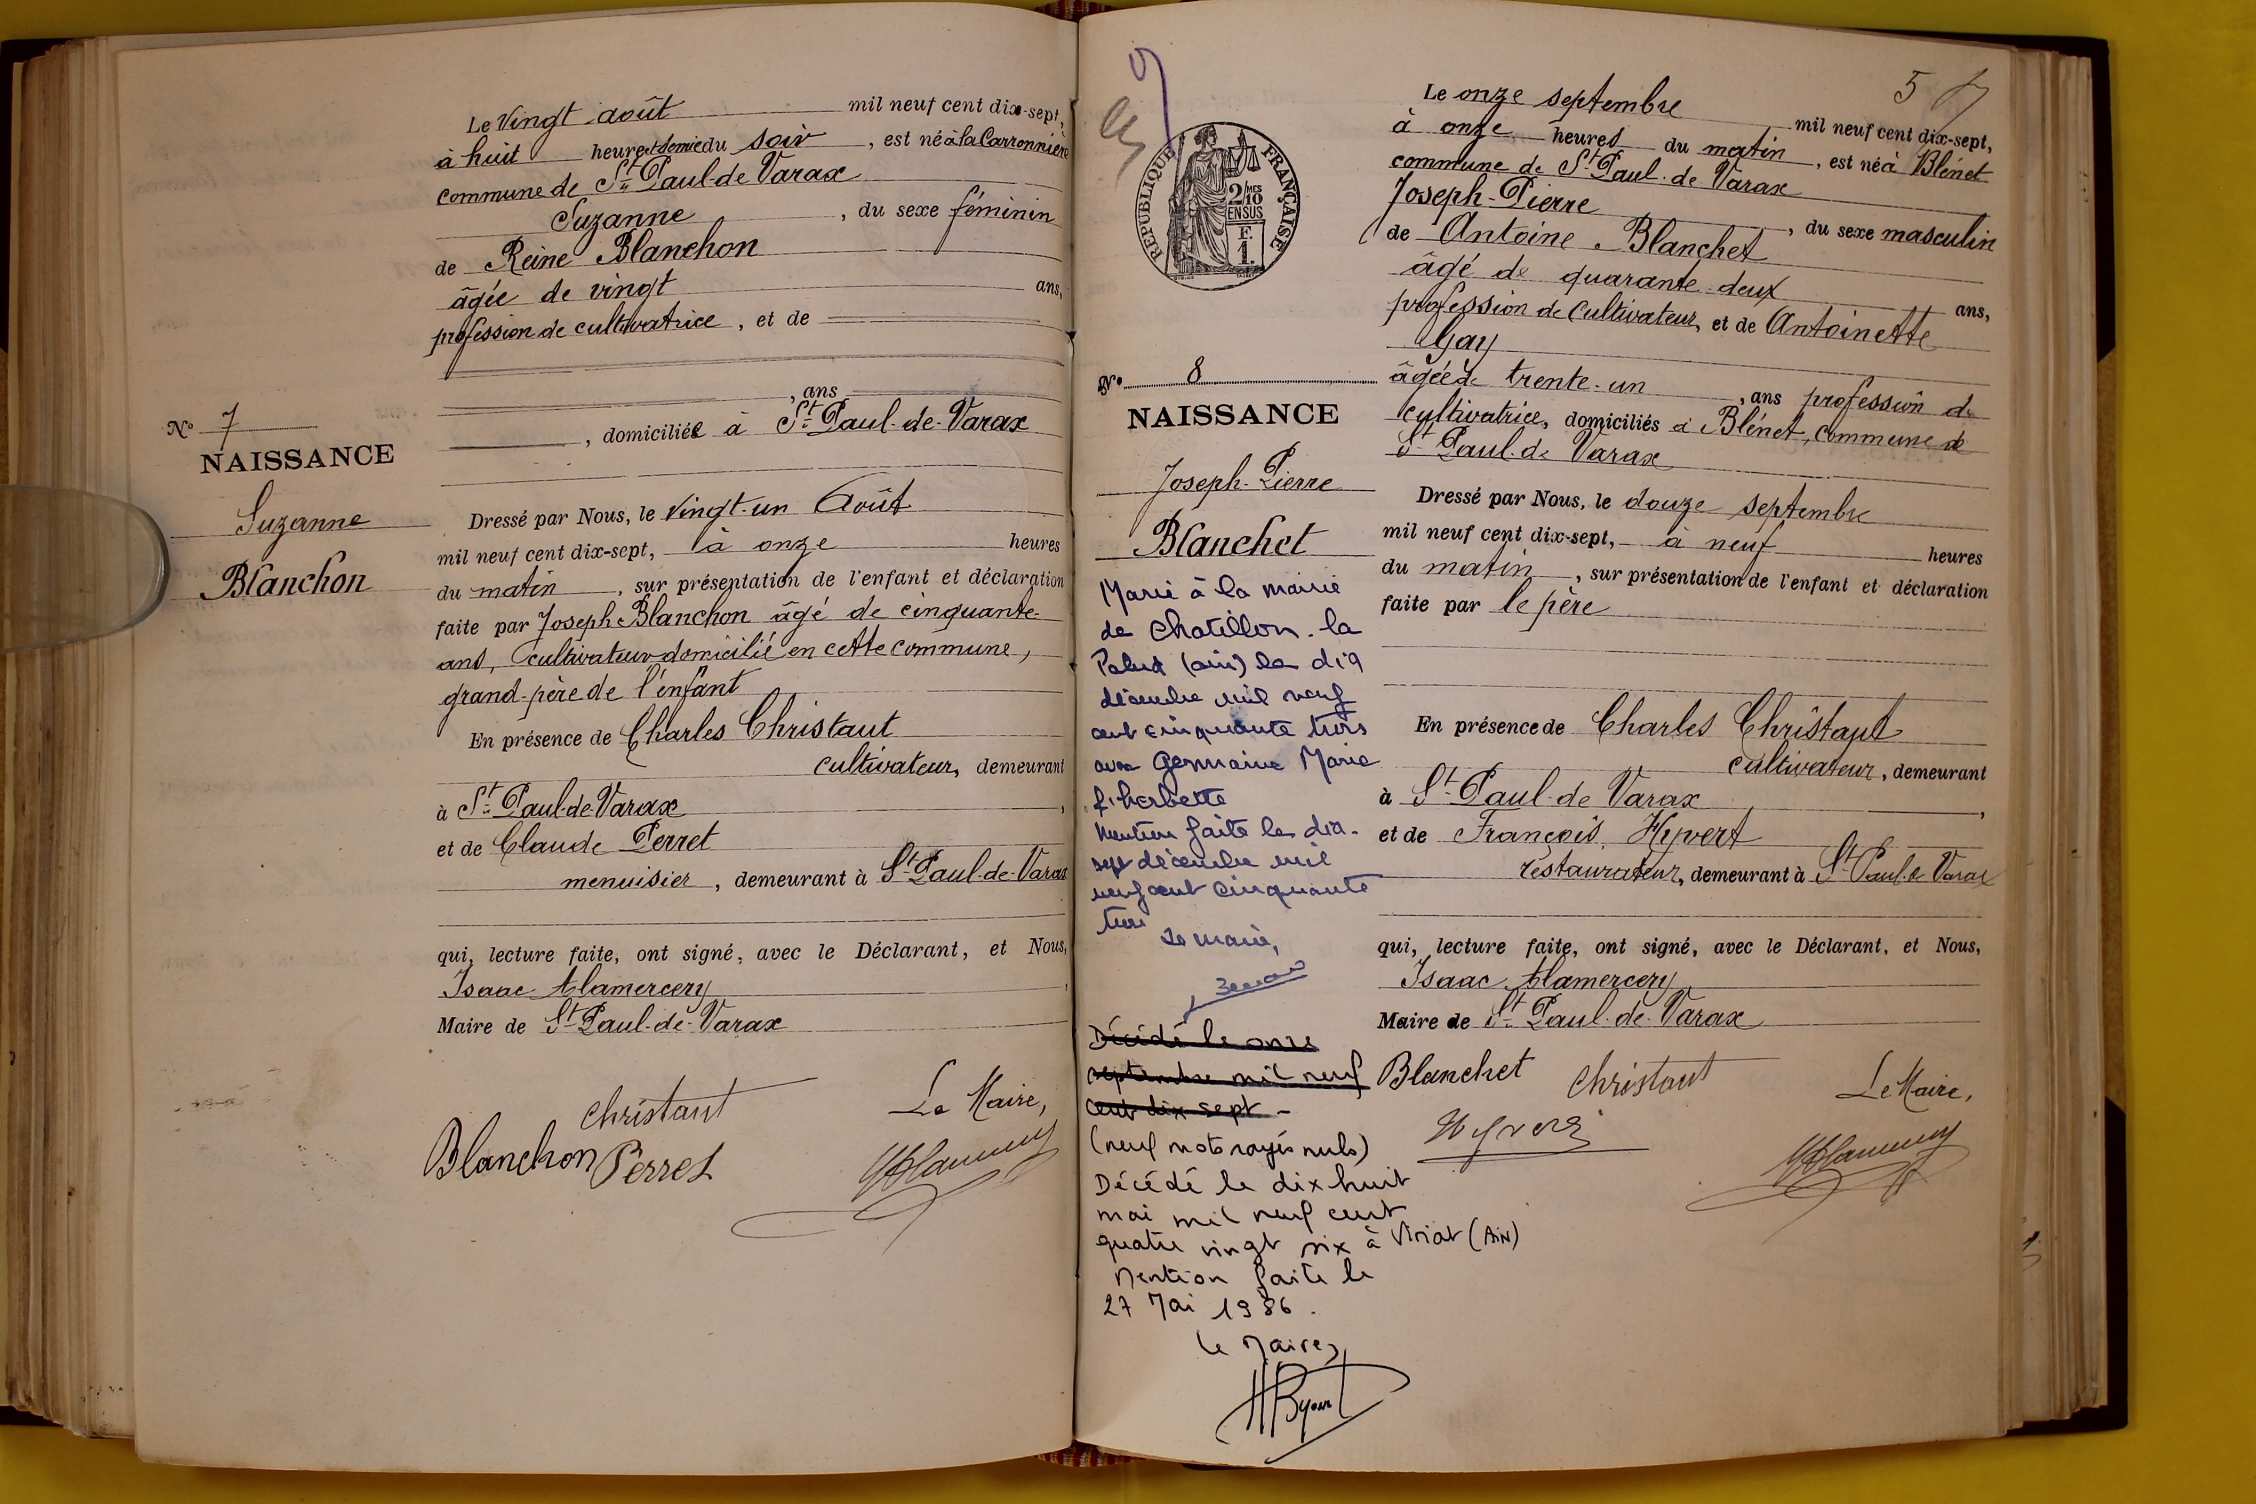 Le vingt août mil neuf cent dix-sept,
à huit heures et demie du soir, est né à la Carronnière
commune de St Paul-de-Varax
Suzanne, du sexe féminin
de Reine Blanchon
âgée de vingt ans,
profession de cultivatrice, et de
, ans
, domiciliée à St Paul-de-Varax
No 7
NAISSANCE
Suzanne
Blanchon
Dressé par Nous, le vingt-un Août
mil neuf cent dix-sept, à onze heures
du matin, sur présentation de l'enfant et déclaration
faite par Joseph Blanchon âgé de cinquante-
ans, cultivateur domicilié en cette commune,
grand-père de l'enfant
En présence de Charles Christaut
cultivateur, demeurant
à St Paul-de-Varax,
et de Claude Perret
menuisier, demeurant à St Paul-de-Varax
qui, lecture faite, ont signé, avec le Déclarant, et Nous,
Isaac Alamercery
Maire de St Paul-de-Varax
Christaut
Le Maire,
Blanchon Perret
5
RÉPUBLIQUE FRANÇAISE
2/10 MES
EN SUS
F.
1.
No 8
NAISSANCE
Joseph-Pierre
Blanchet
Marié à la mairie
de Chatillon-la
Palud (ain) le dix
décembre mil neuf
cent cinquante trois
avec Germaine Marie
Mention faite le dix-
sept décembre mil
neuf cent cinquante
trois
Le maire,
Décédé le onze
septembre mil neuf
cent dix sept -
(neuf mots rayés nuls)
Décédé le dix huit
mai mil neuf cent
quatre vingt six à Viriat (AIN)
Mention faite le
27 Mai 1986.
Le Maire,
Le onze septembre mil neuf cent dix-sept,
à onze heures du matin, est né à Blénet
commune de St Paul-de-Varax
Joseph-Pierre, du sexe masculin
de Antoine Blanchet
âgé de quarante-deux ans,
profession de cultivateur, et de Antoinette
Gay
âgée de trente-un, ans profession de
cultivatrice, domiciliés à Blénet, commune de
St Paul-de Varax
Dressé par Nous, le douze septembre
mil neuf cent dix-sept, à neuf heures
du matin, sur présentation de l'enfant et déclaration
faite par le père
En présence de Charles Christaut
cultivateur, demeurant
à St Paul-de Varax,
et de François Hyvert
restaurateur, demeurant à St Paul-de Varax
qui, lecture faite, ont signé, avec le Déclarant, et Nous,
Isaac Alamercery
Maire de St Paul-de-Varax
Blanchet Christaut
Le Maire,
Hyvert